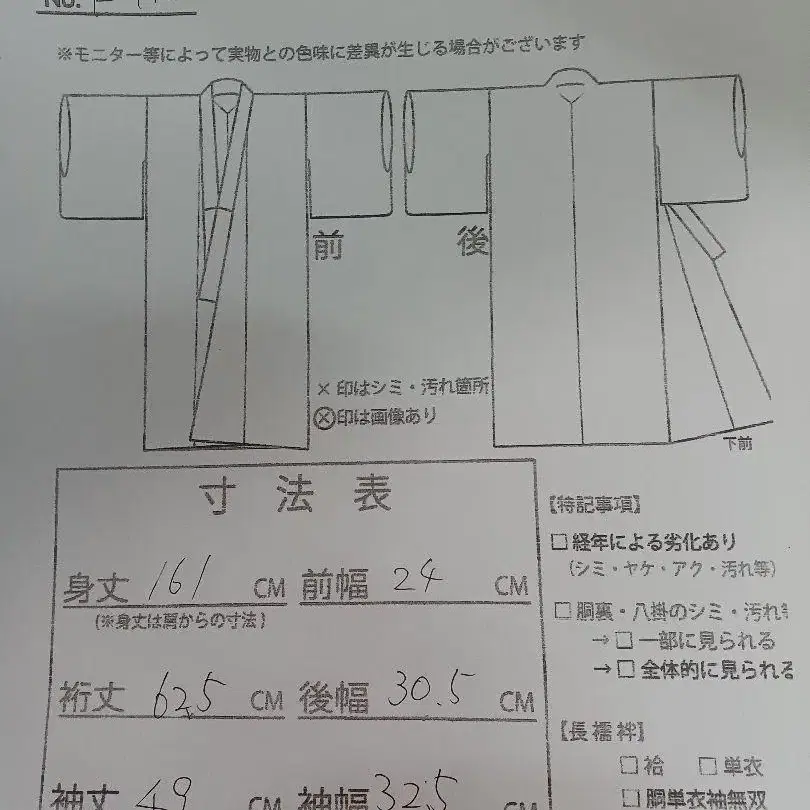 No.
※モニター等によって実物との色味に差異が生じる場合がございます
前
後
×印はシミ・汚れ箇所
Ⓧ印は画像あり
下前
寸法表
身丈 161 CM 前幅 24 CM
(※身丈は肩からの寸法)
裄丈 62.5 CM 後幅 30.5 CM
袖丈 49 CM 袖幅 32.5 CM
【特記事項】
□経年による劣化あり
(シミ・ヤケ・アク・汚れ等)
□胴裏・八掛のシミ・汚れ
→□一部に見られる
→□全体的に見られる
【長襦袢】
□袷 □単衣
□胴単衣袖無双